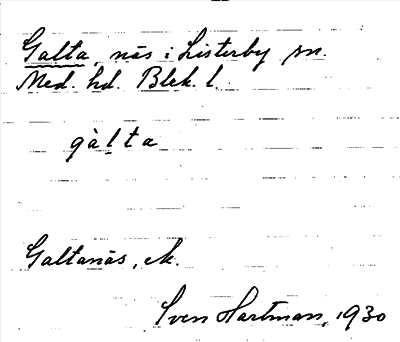 Galta, näs i Listerby sn.
Med. hd. Blek. l.
gàḷta
Galtanäs, ek.
Sven Hartman, 1930